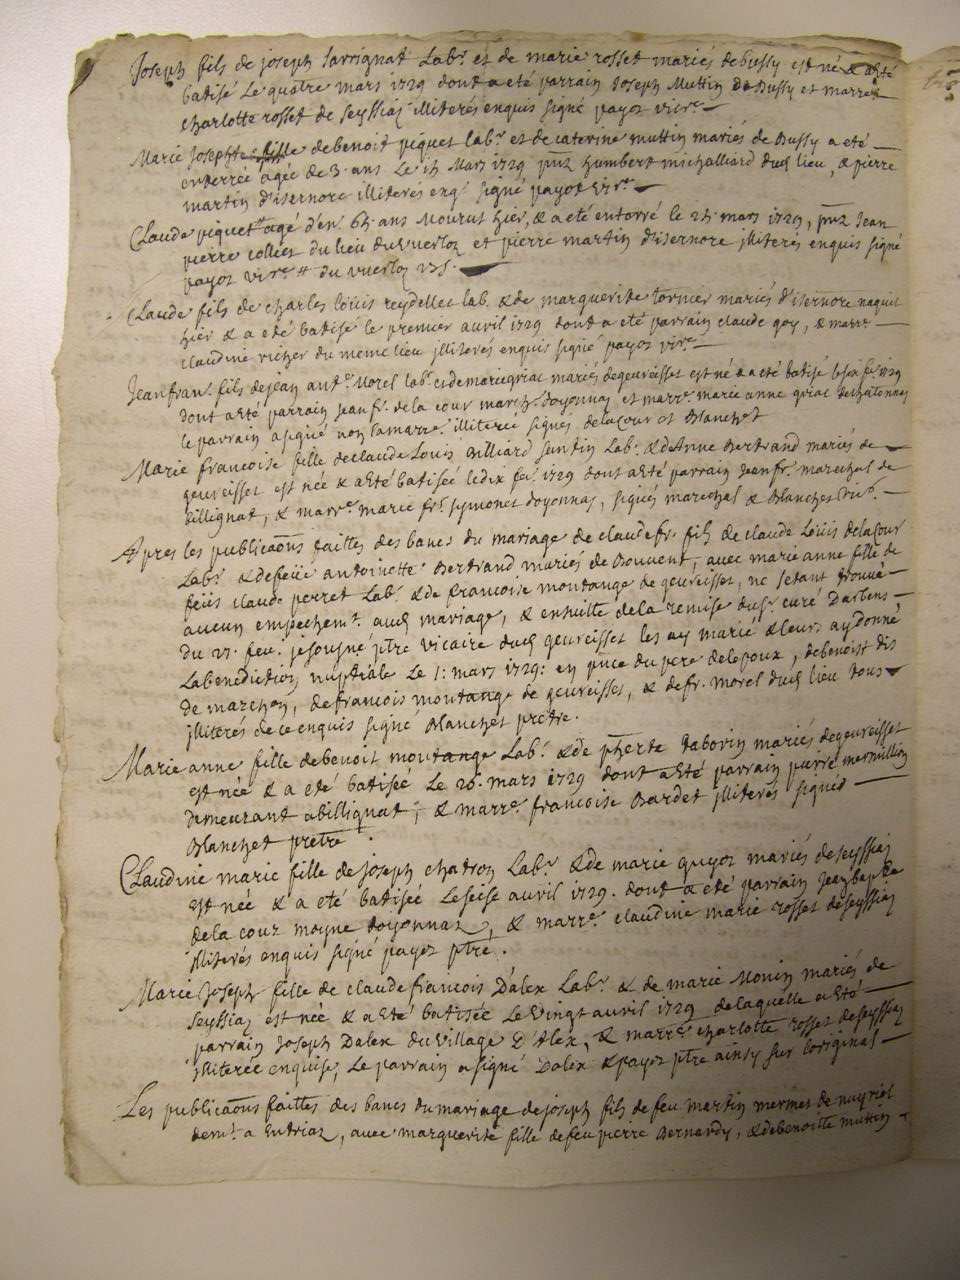 Joseph fils de joseph Savignat Labr. et de marie rosset mariés de bussy est né & a eté
batisé Le quatre mars 1729 dont a eté parrain Joseph Muttin de Bussy et marre.
charlotte rosset de seyssiaz illiterés enquis signé payoz vicre.
Marie Josephte fille de benoit piquet labr. et de caterine muttin mariés de Bussy a eté
enterrée agée de 3. ans Le Mars 1729 humbert michalliard dud lieu, & pierre
martin d'isernore illiterés enq. signé payoz vicre.
Claude piquet agé d'en. 65 ans Mourut hier, & a eté enterré le 25. mars 1729, Jean
pierre colliet du lieu du vuerloz et pierre martin d'isernore illiterés enquis signé
payoz vicre. du vuerloz
Claude fils de charles loüis reydellet lab. & de marguerite tornier mariés d'isernore naquit
hier & a eté batisé le premier avril 1729 dont a eté parrain claude goy, & marre.
claudine vicher du meme lieu illiterés enquis signé payoz vicre.
Jean fran. fils de jean ant.e Morel labr. et de marie griac mariés de geureisset est né & a eté batisé 1729
dont a eté parrain Jean fr. de la cour march. doyonnaz et marre. marie anne griac
le parrain a signé non la marre. illiterée signés delacour et Blanchet
Marie francoise fille de claude Louis Billiard Labr. & d'Anne Bertrand mariés de
geureisset est née & a eté batisée le dix fev. 1729 dont a eté parrain Jean fr. marechal de
billignat, & marre. marie fr. symonet doyonnaz, signés marechal & Blanchet vic.
Apres les publicaõns faittes des bancs du mariage de claude fr. fils de claude Loüis delacour
Labr. & de feüe antoinette Bertrand mariés de Bouvent, avec marie anne fille de
feüs claude perret Labr. & de francoise montange de geureisset, ne s'etant trouvé
aucun empechemt. aud mariage, & ensuitte de la remise du sr. curé Darbens
du 27. fev. je sousgné ptre vicaire dud geureisset les ay marié & leurs ay donné
La benediction nuptiale Le 1: mars 1729: en pnce du pere de lepoux, de benoist dis
de marchon, de francois montange de geureisset, & de fr. morel dud lieu tous
illiterés de ce enquis signé Blanchet pretre.
Marie anne fille de benoit montange Labr. & de pherte taborin mariés de geureisset
est née & a eté batisée Le 26. mars 1729 dont a eté parrain pierre mermillion
demeurant a billignat, & marre. francoise Bardet illiterés signés
Blanchet pretre.
Claudine marie fille de joseph chatron Labr. & de marie guyoz mariés de seyssiaz
est née & a eté batisée Le seise avril 1729. dont a eté parrain jean baptte
de la cour moyne doyonnaz, & marre. claudine marie rosset de seyssiaz
illiterés enquis signé payoz ptre.
Marie Joseph fille de claude francois Dalex Labr. & de marie Monin mariés de
seyssiaz est née & a eté batisée Le vingt avril 1729 de laquelle a eté
parrain Joseph Dalex du village d'Alex, & marre. charlotte rosset de seyssiaz
illiterée enquise, Le parrain a signé Dalex & payoz ptre ainsy sur loriginal
Les publicaõns faittes des bancs du mariage de joseph fils de feu martin mermet de nuyriat
demt. a Entriaz, avec marguerite fille de feu pierre Bernardy, & de benoitte muttin